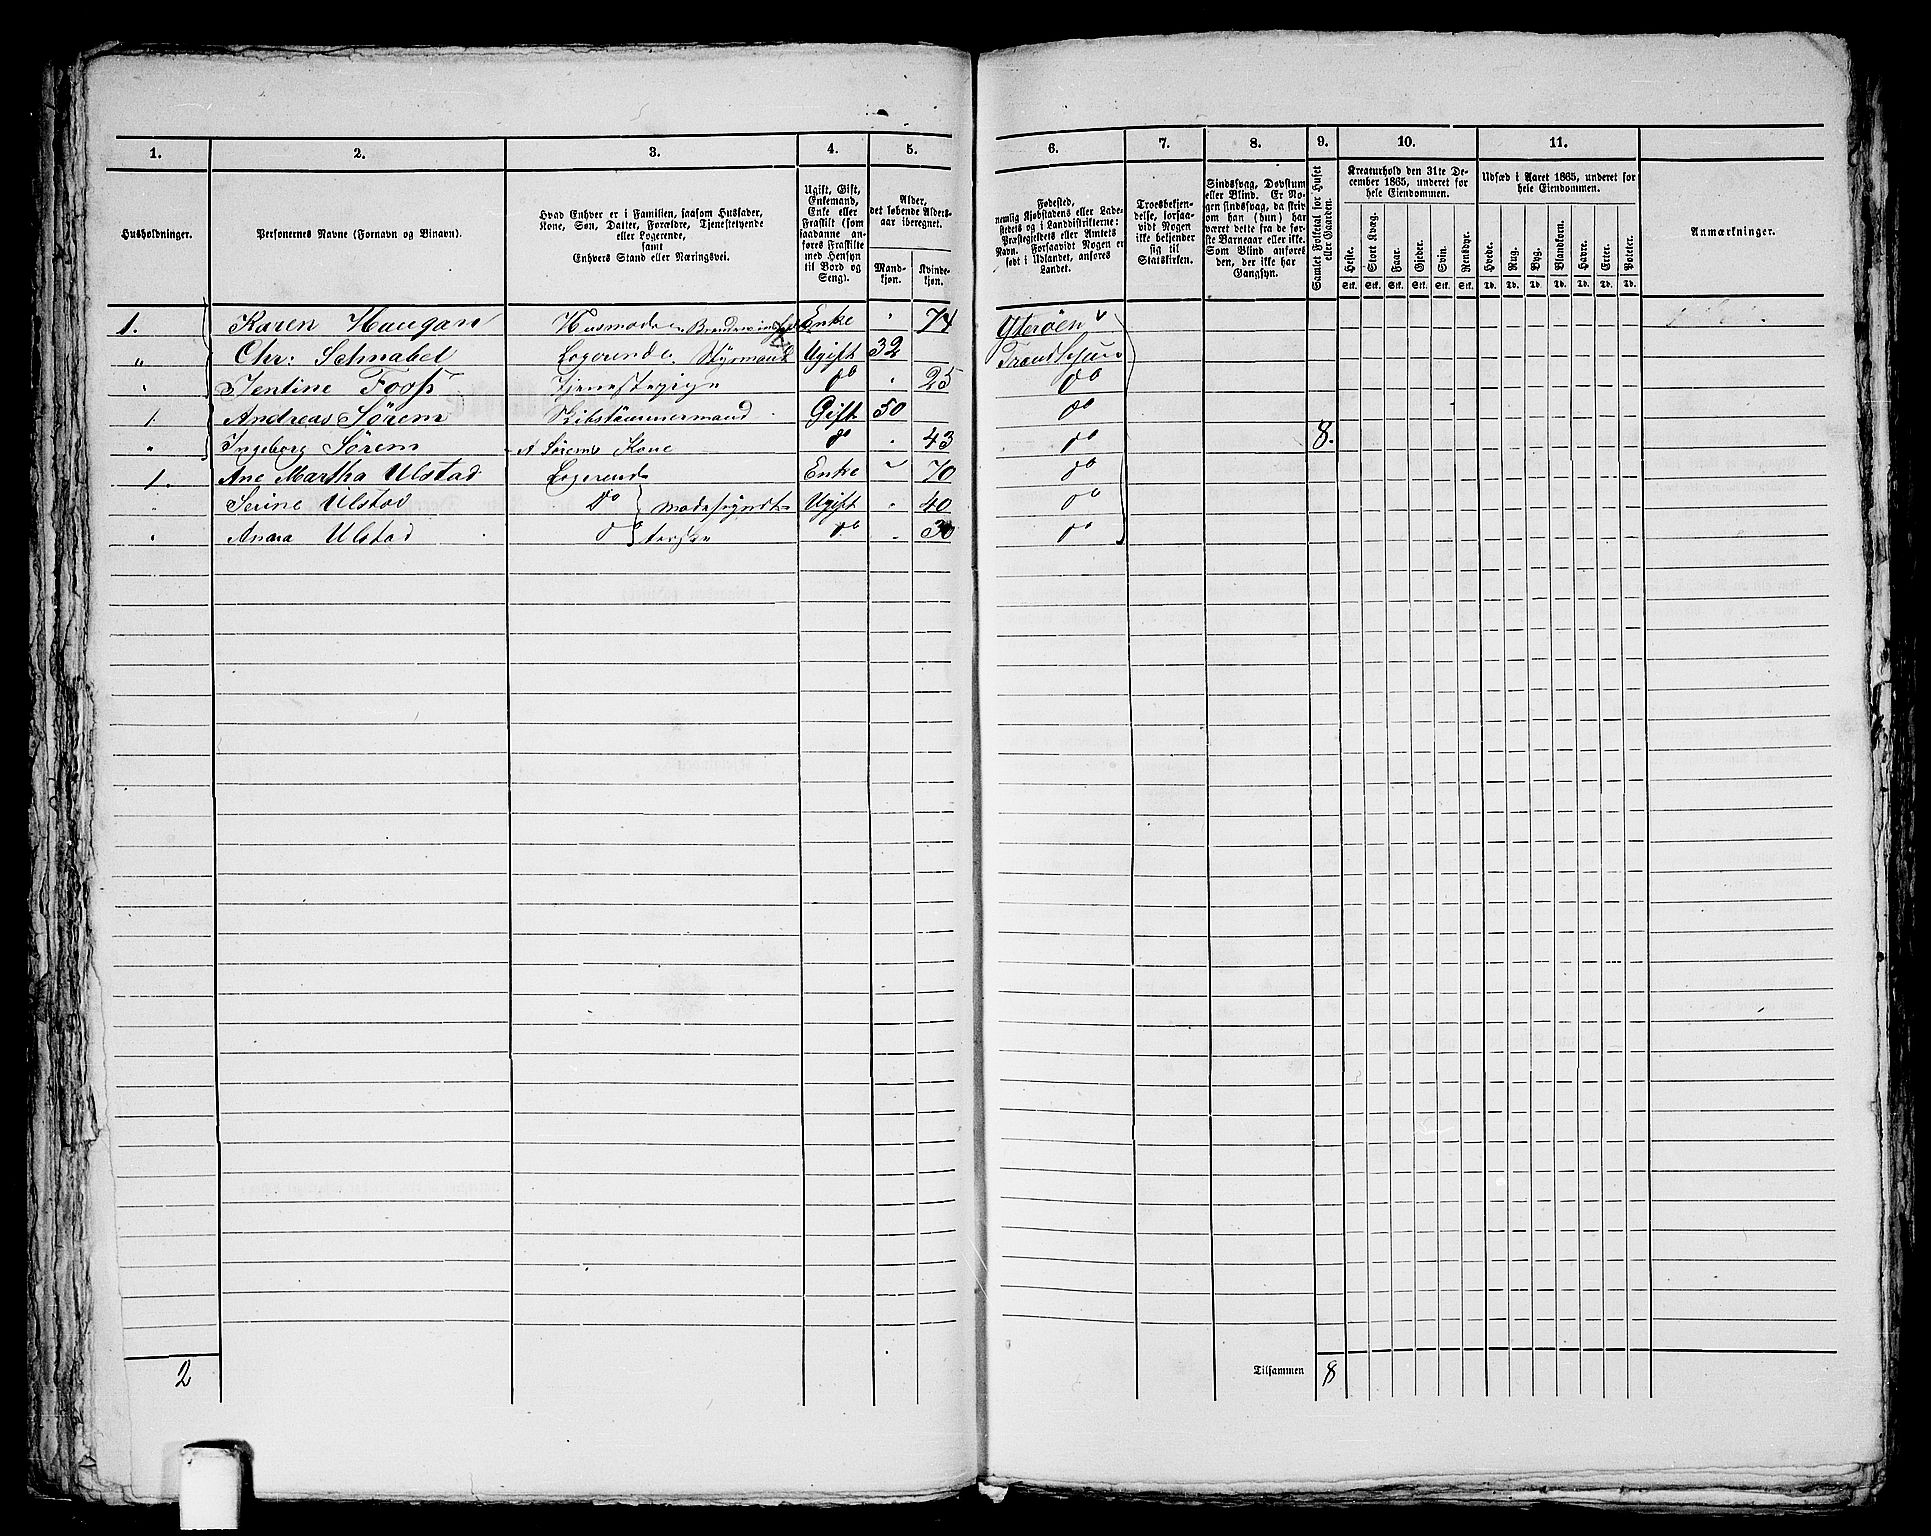 1. 2. 3. 4. 5. 6. 7. 8. 9. 10. 11.
Husholdninger.
Personernes Navne (Fornavn og Binavn).
Hvad Enhver er i Familien, saasom Husfader,
Kone, Søn, Datter, Forældre, Tjenestetyende
eller Logerende,
samt
Enhvers Stand eller Næringsvei.
Ugift, Gift,
Enkemand,
Enke eller
Fraskilt (som
saadanne an-
føres Fraskilte
med Hensyn
til Bord og
Seng).
Alder,
det løbende Alders-
aar iberegnet.
Mand-
kjøn.
Kvinde-
kjøn.
Fødested,
nemlig Kjøbstadens eller Lade-
stedets og i Landdistrikterne:
Præstegjeldets eller Amtets
Navn. Forsaavidt Nogen er
født i Udlandet, anføres
Landet.
Troesbekjen-
delse, forsaa-
vidt Nogen
ikke bekjender
sig til
Statskirken.
Sindssvag, Døvstum
eller Blind. Er No-
gen sindssvag, da skriv
om han (hun) har
været dette fra de før-
ste Barneaar eller ikke.
Som Blind anføres
den, der ikke har
Gangsyn.
Samlet Folketal for Huset
eller Gaarden.
Kreaturhold den 31te De-
cember 1865, underet for
hele Eiendommen.
Heste. Stort Kvæg. Faar. Gjeder. Svin. Rensdyr.
Stk. Stk. Stk. Stk. Stk. Stk.
Udsæd i Aaret 1865, underet for
hele Eiendommen.
Hvede. Rug. Byg. Blandkorn. Havre. Erter. Poteter.
Td. Td. Td. Td. Td. Td. Td.
Anmærkninger.
1. Karen Haugan Husmoder Enke " 74 Ytterøen
" Chr: Schnabel Logerende, Styrmand Ugift 32 Trondhjem
" Jentine Fooss Tjenestepige do " 25 do
1 Andreas Sørem Skibstømmermand Gift 50 do
" Ingeborg Sørem A Sørems Kone do " 43 do 8.
1. Ane Martha Ulstad Logerende Enke " 70 do
" Serine Ulstad do Modepyndt- Ugift " 40 do
" Anna Ulstad do do " 30 do
2 Tilsammen 8